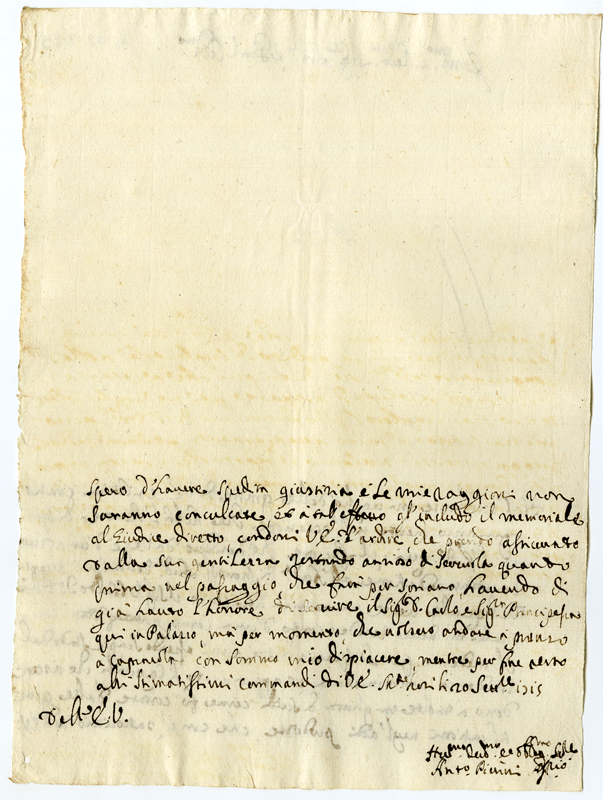 spero d'havere spedita giustitia e le mie raggioni non
saranno conculcate, et a tal effetto gl'includo il memoriale
al Giudice diretto, condoni V.E. l'ardire, che prendo assicurato
dalla sua gentilezza restando ansioso di servirla quando
prima nel passaggio, che farà per Soriano havendo di
già havuto l'honore di servire il Sig.r D. Carlo e Sig.ra Principessa
qui in Palazzo, mà per momento, che volsero andare a
a con sommo mio dispiacere, mentre per fine resto
alli stimatissimi commandi di V.E. Sett.re 1715
Di V.E.
Hum.mo Dev.mo et Obblig.mo Ser.re
Ant.o